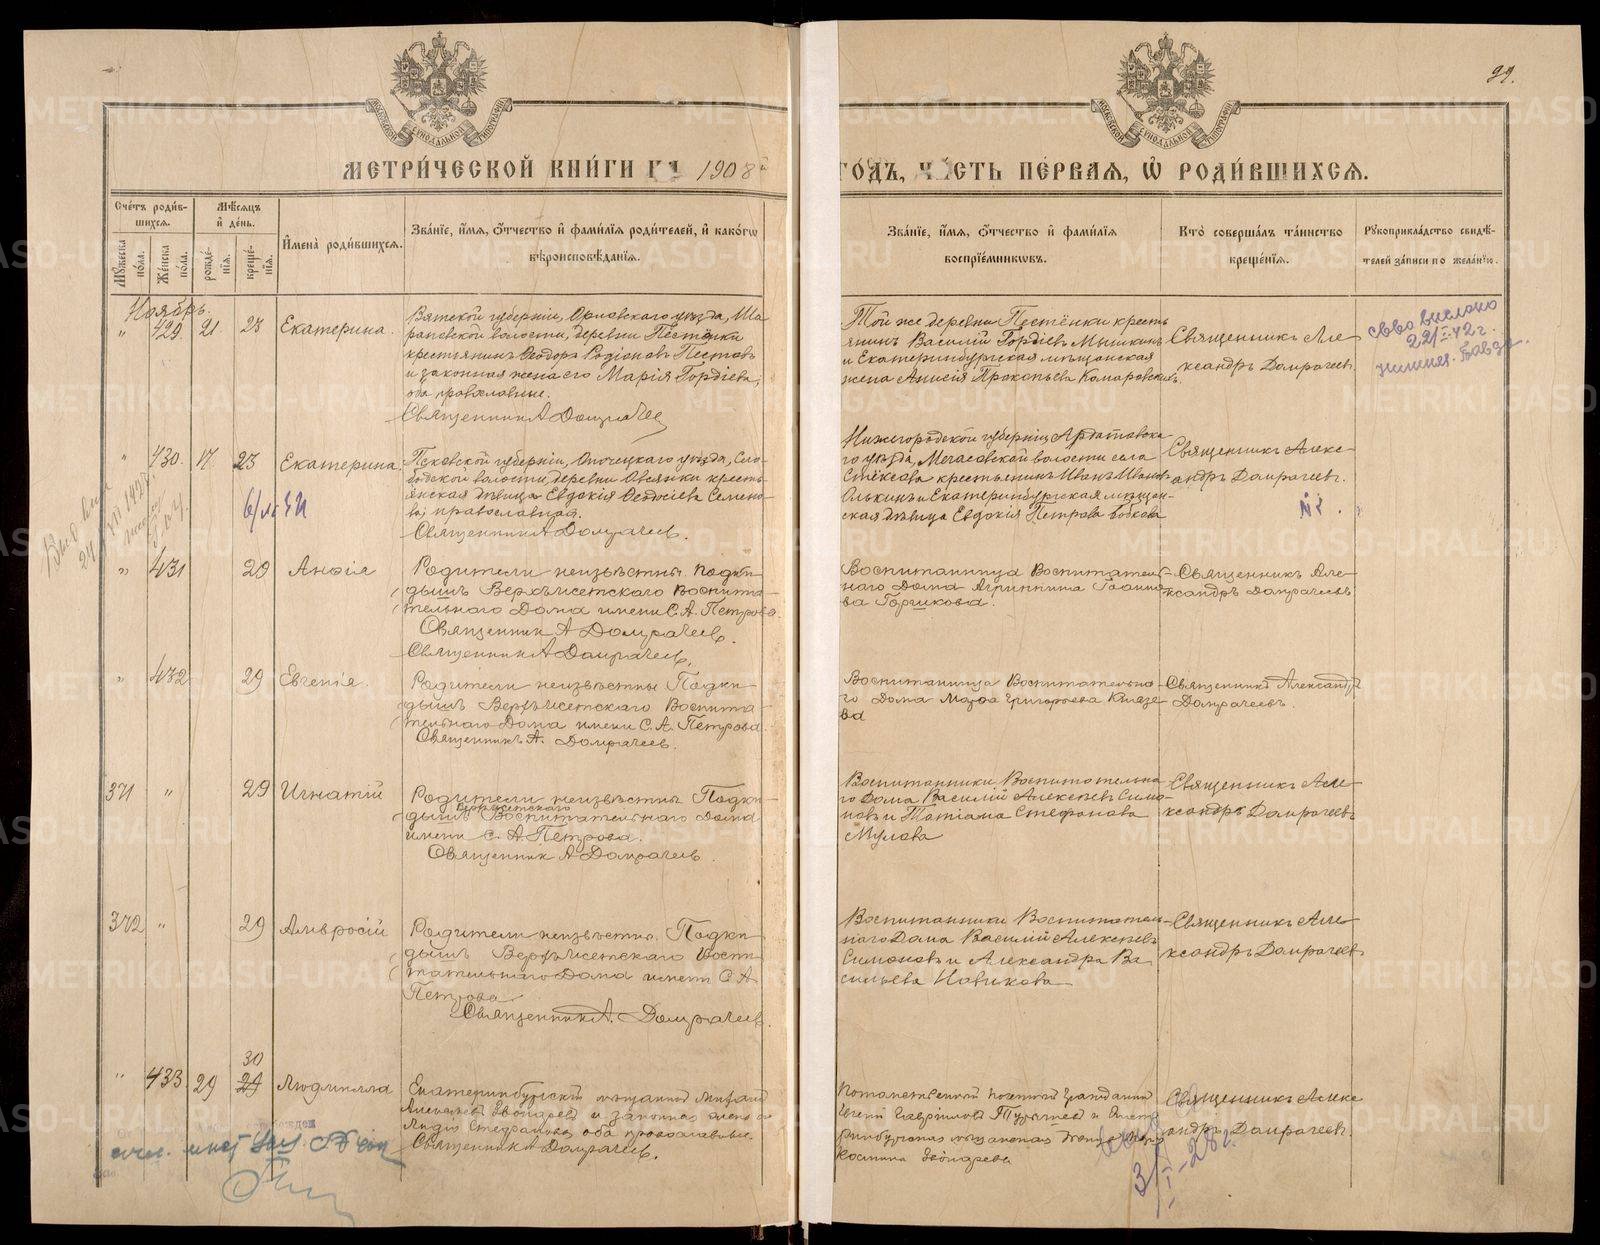 99.
МЕТРИ́ЧЕСКОЙ КНИ́ГИ НА 1908й
ГО́ДЪ, ЧА́СТЬ ПЕ́РВАЯ, Ѽ РОДИ́ВШИХСЯ.
Сче́тъ роди́вшихся.
Му́жеска по́ла.
Же́нска по́ла.
Мѣ́сяцъ и҆ де́нь.
рожде́нїя.
креще́нїя.
И҆мена̀ роди́вшихся.
Зва́нїе, и҆́мя, ѻ҆́тчество и҆ фами́лїя роди́телей, и҆ како́гѡ
вѣроисповѣ́данїя.
Зва́нїе, и҆́мя, ѻ҆́тчество и҆ фами́лїя
воспрїе́мникѡвъ.
Кто̀ соверша́лъ та́инство
креще́нїя.
Рꙋкоприкла́дство свидѣ́-
телей за́писи по жела́нїю.
Ноябрь.
" 429 21. 23 Екатерина.
Вятской губерніи, Орловскаго уѣзда, Ша-
рановской волости, деревни Пестёнки
крестьянинъ Ѳеодоръ Родіоновъ Пестовъ
и законная жена его Марія Гордіева,
оба православные.
Священникъ А Домрачев
Той же деревни Пестёнки кресть
янинъ Василій Гордіевъ Мышкинъ
и Екатеринбургская мѣщанская
жена Анисія Прокопьева Комаровскихъ.
Священникъ Але
ксандръ Домрачевъ
22/I-42 г.
" 430. 17. 23 Екатерина.
Псковской губерніи, Опочецкаго уѣзда, Сло-
бодской волости, деревни Овсянки кресть-
янская дѣвица Евдокія Ѳеодосіева Семено-
ва, православная.
Священникъ А Домрачев.
Нижегородской губерніи, Ардатовска-
го уѣзда, Мечасовской волости села
Стёксова крестьянинъ Иванъ Иванов
Олькинъ и Екатеринбургская мѣщан-
ская дѣвица Евдокія Петрова Бобкова
Священникъ Алекс-
андръ Домрачевъ.
" 431 29 Анфія
Родители неизвѣстны. Подки-
дышъ Верхъисетскаго Воспита-
тельнаго Дома имени С. А. Петрова.
Священник А Домрачев.
Священник А Домрачев.
Воспитанница Воспитатель-
наго Дома Агриппина Іоанно-
ва Горшкова.
Священникъ Але-
ксандръ Домрачевъ
" 432 29 Евгенія.
Родители неизвѣстны Подки-
дышъ Верхъисетскаго Воспита-
тельнаго Дома имени С. А. Петрова.
Священникъ А. Домрачев.
Воспитанница Воспитательна-
го Дома Марѳа Григорьева Князе-
ва
Священникъ Александръ
Домрачевъ.
371 " 29 Игнатій
Родители неизвѣстны Подки-
Верхъисетскаго
дышъ Воспитательнаго Дома
имени С. А. Петрова.
Священник А Домрачев.
Воспитанники Воспитательна-
го Дома Василій Алексѣевъ Симо-
новъ и Татіана Стефанова
Мулова
Священникъ Але-
ксандръ Домрачевъ
372 " 29 Амвросій
Родители неизвѣстны. Подки-
дышъ Верхъисетскаго Воспи-
тательнаго Дома имени С. А
Петрова
Священник А. Домрачев.
Воспитанники Воспитатель-
наго Дома Василій Алексѣевъ
Симоновъ и Александра Ва-
сильева Новикова
Священникъ Але-
ксандръ Домрачевъ
30
" 433 29 29 Людмилла
Екатеринбургскій мѣщанинъ
Алексѣевъ Звонаревъ и законная жена его
Лидія Стефанова, оба православные.
Священникъ А Домрачев.
Потомственный почетный гражданинъ
Евгеній Гавриловъ Турышевъ и Екате-
ринбургская мѣщанская
Звонарева
Священникъ Алекс
андръ Домрачевъ.
3/I-28 г.